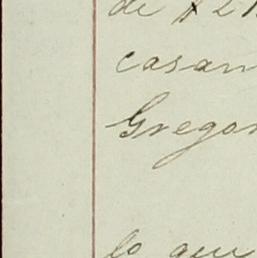 de $ 21
casam
Gregor
lo que